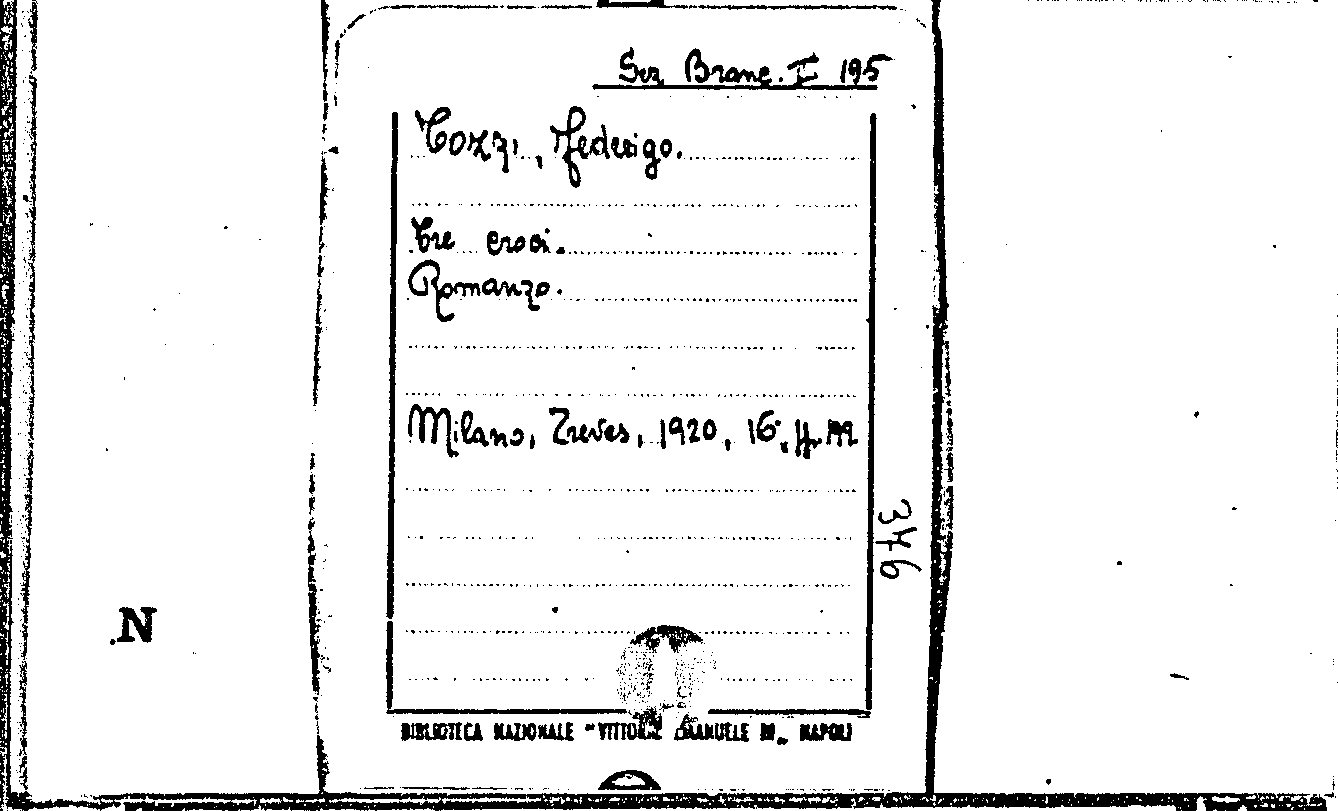 Sez Branc. I 195
Tozzi, Federigo.
Tre croci.
Romanzo.
Milano, Treves, 1920, 16°,
346
N
BIBLIOTECA NAZIONALE "VITTORIO EMANUELE III„ NAPOLI